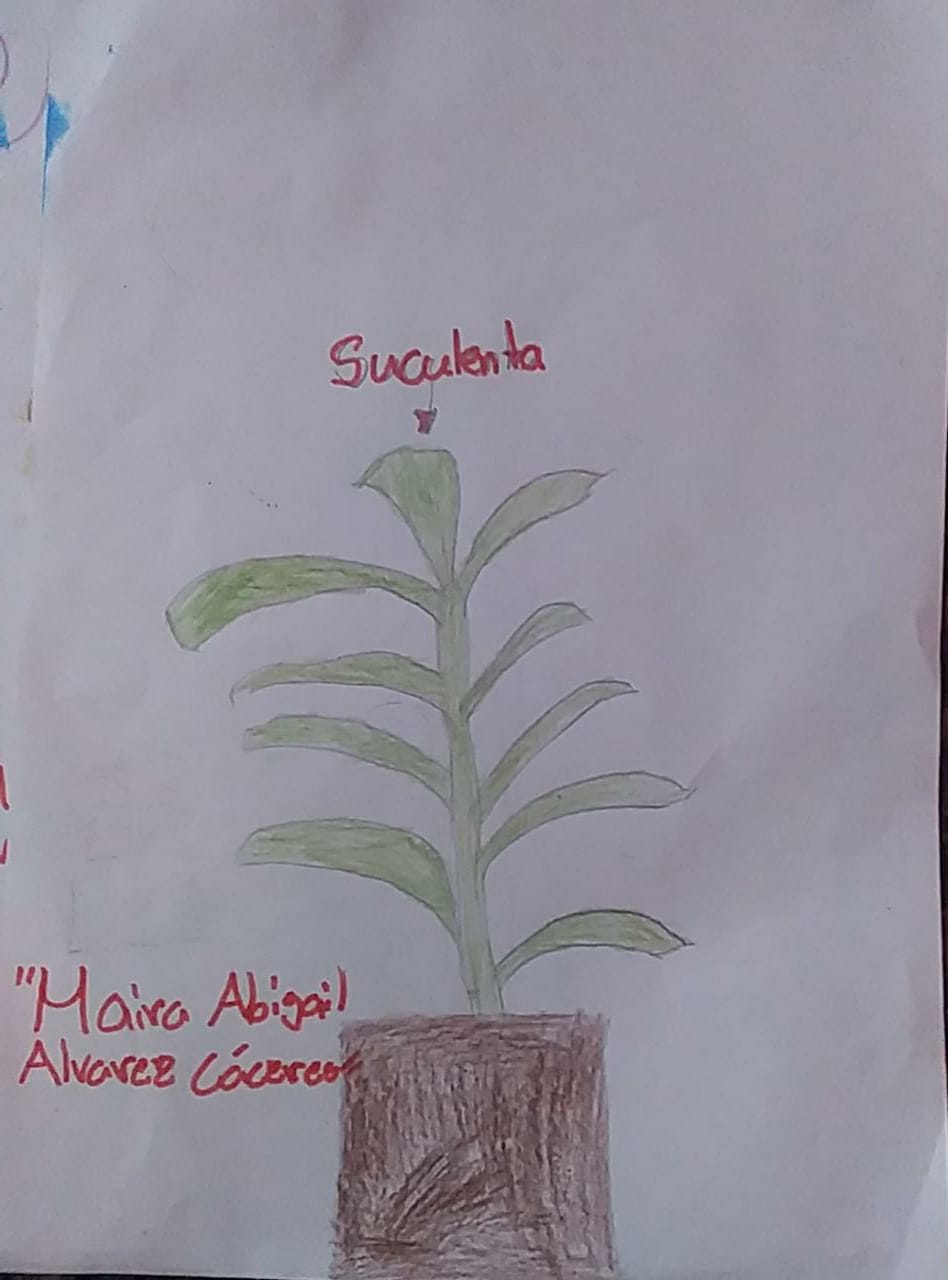 Suculenta
"Maira Abigail
Alvarez Cáceres"